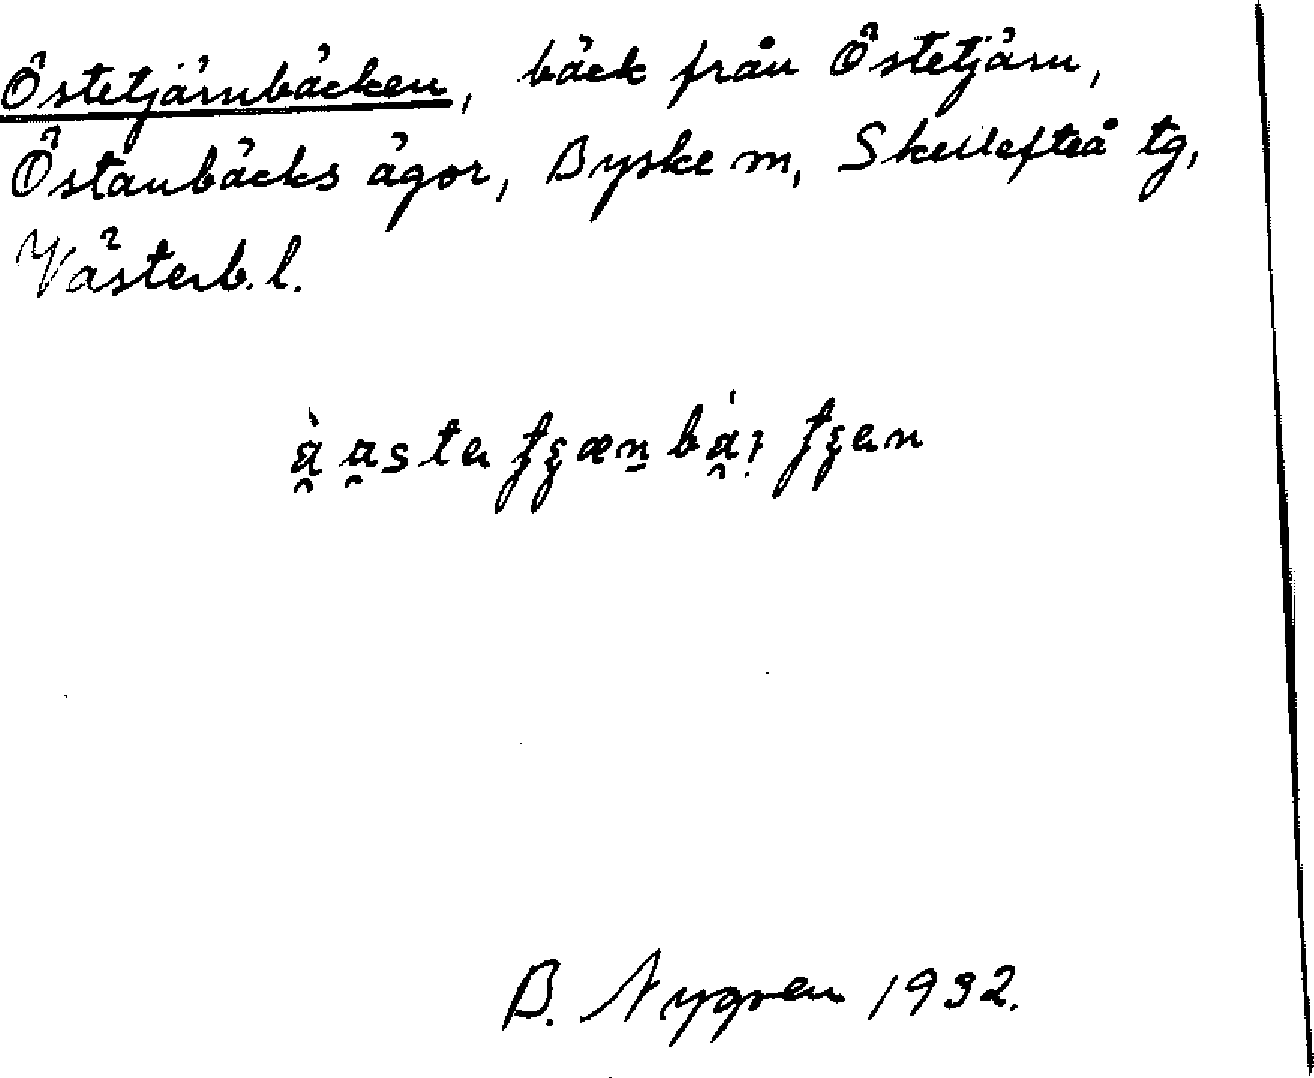 Östetjärnbäcken, bäck från Östetjärn,
Östanbäcks ägor, Byske sn, Skellefteå tg,
Västerb. l.
B. Nygren 1932.